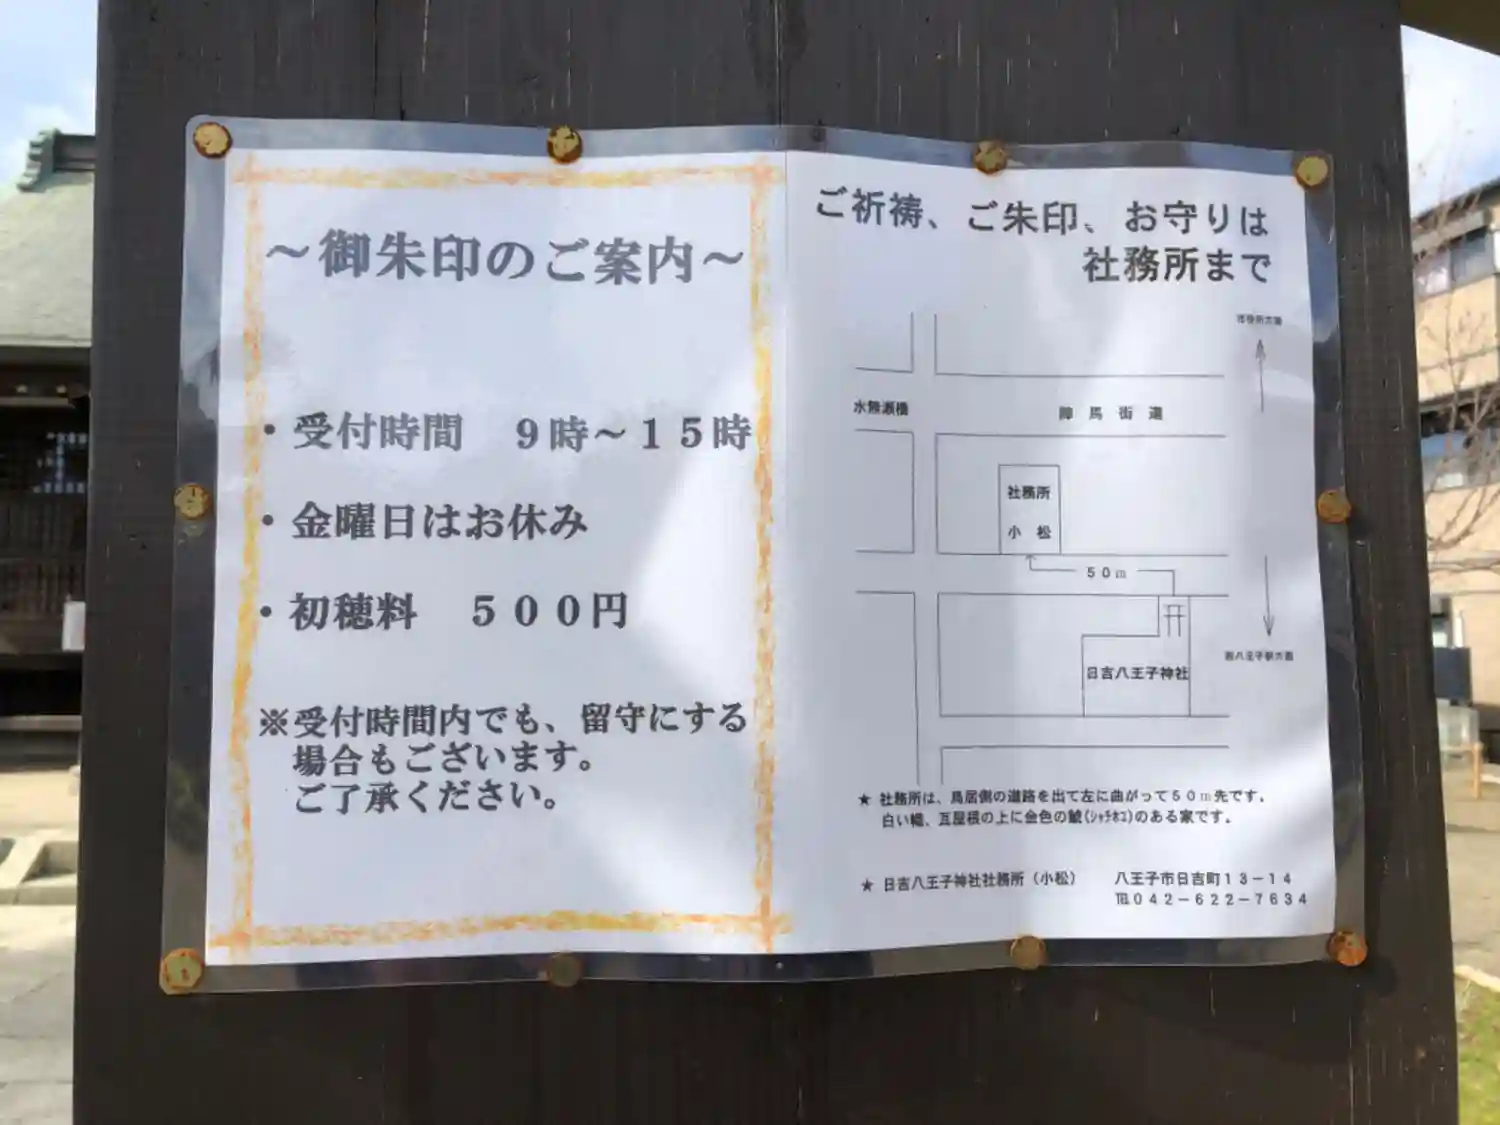 ～御朱印のご案内～
・受付時間　９時～１５時
・金曜日はお休み
・初穂料　５００円
※受付時間内でも、留守にする
場合もございます。
ご了承ください。
ご祈祷、ご朱印、お守りは
社務所まで
市役所方面
水無瀬橋
陣馬街道
社務所
小松
５０ｍ
日吉八王子神社
西八王子駅方面
★ 社務所は、鳥居側の道路を出て左に曲がって５０ｍ先です。
白い幟、瓦屋根の上に金色の鯱(ｼｬﾁﾎｺ)のある家です。
★ 日吉八王子神社社務所（小松）　八王子市日吉町１３－１４
℡０４２－６２２－７６３４